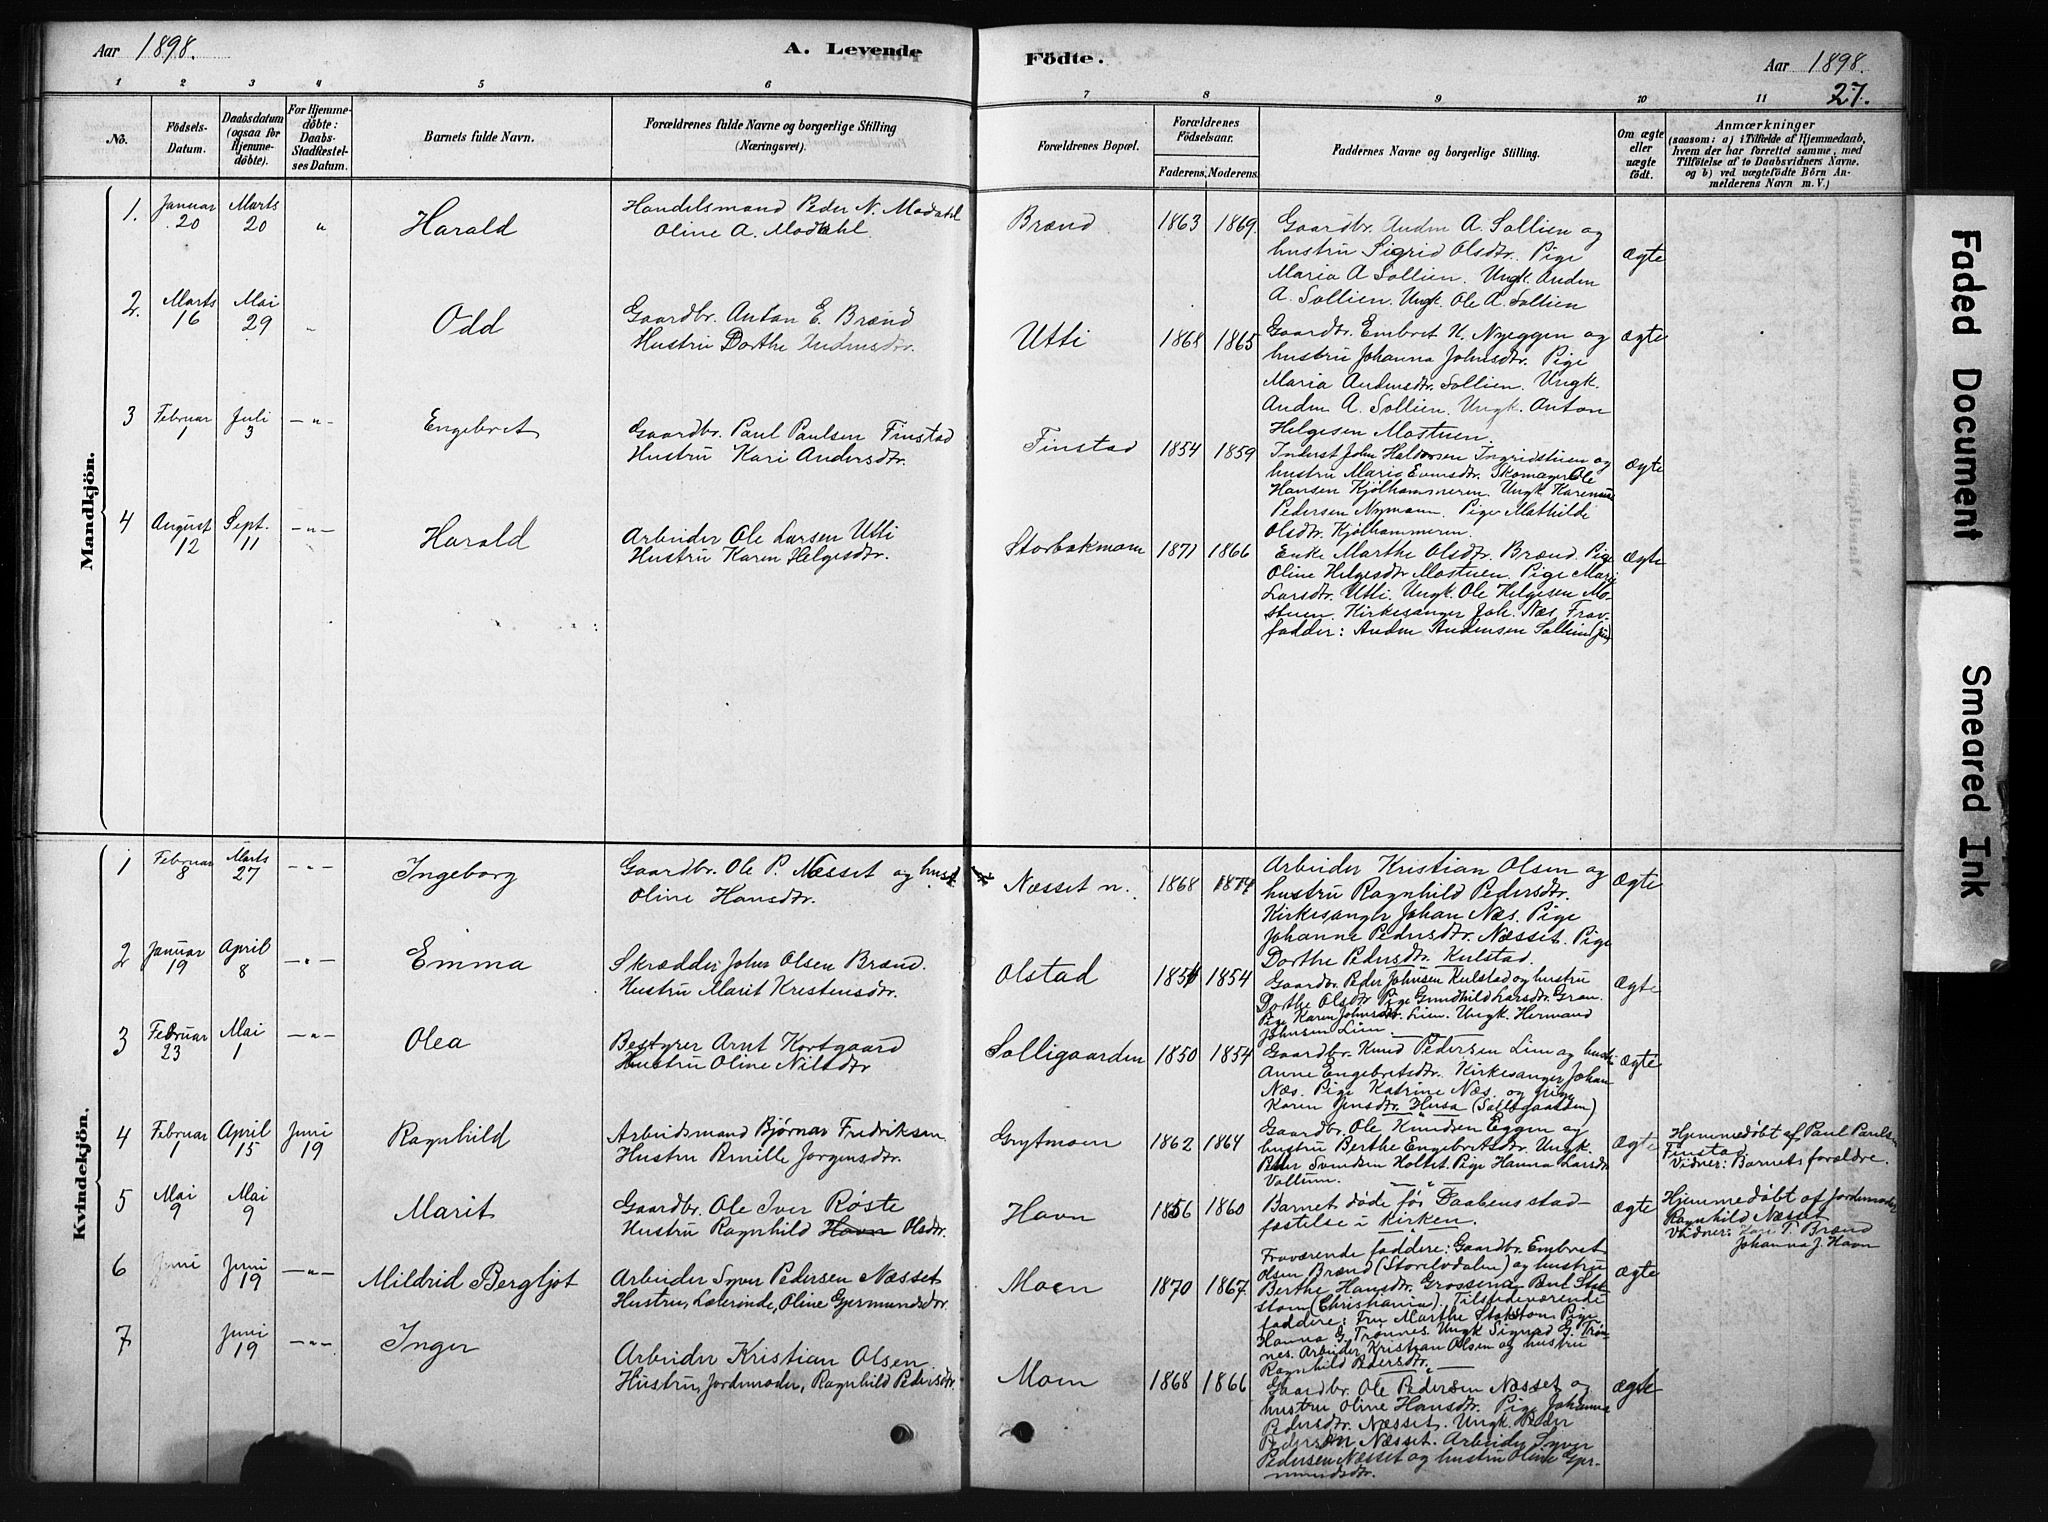 Aar 1898.
A. Levende
Födte.
Aar 1898.
27.
1 2 3 4 5 6 7 8 9 10 11
No.
Födsels-Datum.
Daabsdatum (ogsaa for Hjemmedöbte).
For Hjemmedöbte: Daabs-Stadfæstelses Datum.
Barnets fulde Navn.
Forældrenes fulde Navne og borgerlige Stilling (Næringsvei).
Forældrenes Bopæl.
Forældrenes Födselsaar.
Faderens. Moderens.
Faddernes Navne og borgerlige Stilling.
Om ægte eller uægte födt.
Anmærkninger
(saasom: a) i Tilfælde af Hjemmedaab, hvem der har forrettet samme, med Tilföielse af to Daabsvidners Navne. og b) ved uægtefödte Börn Anmelderens Navn m. V.)
Mandkjön.
1. Januar 20 Marts 20 " Harald
Handelsmand Peder N. Modahl
Oline A. Modahl.
Brænd 1863 1869.
Gaardbr. Anden A. Sollien og
hustru Sigrid Olsdtr. Pige
Maria A Sollien. Ungk. Anden
A. Sollien. Ungk. Ole A. Sollien
ægte
2. Marts 16 Mai 29 " Odd
Gaardbr. Anton E. Brænd
Hustru Dorthe
Utti 1868 1865
Gaardbr. Embret K. Nyeggen og
hustru Johanna Johnsdtr. Pige
Maria Andersdtr. Sollien. Ungk.
Anden A. Sollien. Ungk. Anton
Helgesen Mostuen.
ægte
3 Februar 1 Juli 3 —"— Engebret
Gaardbr. Paul Paulsen Finstad
Hustru Kari Andersdtr.
Finstad 1854 1859
Inderst John Halvorsen Ingridstuen og
hustru Maria Evensdtr. Skomager Ole
Hansen Kjølhammeren. Ungk.
Pedersen Nymann. Pige Mathilde
Olsdtr. Kjølhammeren.
ægte
4 August 12 Sept. 11 —"— Harald
Arbeider Ole Larsen Utti
Hustru Karen Helgesdtr.
Storbakmoen 1871 1866
Enke Marthe Olsdtr. Brænd. Pige
Oline Helgesdtr. Mostuen. Pige Mari
Larsdtr. Utti. Ungk. Ole Helgesen Mo-
stuen. Kirkesanger Joh. Næs. Frav.
fadder: Anden Andersen Sollien (jun)
ægte
Kvindekjön.
1 Februar 8 Marts 27 —"— Ingeborg
Gaardbr. Ole P. Næsset og hust.
Oline Hansdtr.
Næsset n. 1868 1874
Arbeider Kristian Olsen og
hustru Ragnhild Pedersdtr.
Kirkesanger Johan Næs. Pige
Johanne Pedersdtr. Næsset. Pige
Dorthe Pedersdtr. Kulstad.
ægte
2 Januar 19 April 8 —"— Emma
Skrædder John Olsen Brænd.
Hustru Marit Kristensdtr.
Olstad 1854
Gaardbr. Peder Johnsen Kulstad og hustru
Dorthe Olsdtr. Pige Gundhild Larsdtr. Gran.
Pige Karen Johnsdtr. Lien. Ungk. Hermand
Johnsen Lien.
ægte
3 Februar 23 Mai 1 —"— Olea
Bestyrer Arnt Kortgaard
Hustru Oline Nilsdtr
Solligaarden 1850 1854
Gaardbr. Knud Pedersen Lien og hustru
Anne Engebretsdtr. Kirkesanger Johan
Næs. Pige Katrine Næs. og pige
Karen Jensdtr. Husa (Solligaarden)
ægte
4 Februar 1 April 15 Juni 19 Ragnhild
Arbeidsmand Bjørnar Fredriksen
Hustru Pernille Jørgensdtr.
Grytmoen 1862 1864
Gaardbr. Ole Knudsen Eggen og
hustru Berthe Engebretsdtr. Ungk.
Peder Svendsen Holtet. Pige Hanna Larsdtr
Vollum.
ægte
Hjemmedøbt af Paul Paulsen
Finstad
Vidner: Barnets forældre.
5 Mai 9 Mai 9 Marit
Gaardbr. Ole Iver Røste
Hustru Ragnhild Havn Olsdtr.
Havn 1856 1860
Barnet døde før Daabens stad-
fæstelse i kirken.
ægte
Hjemmedøbt af Jordemoder
Ragnhild Næsset
Vidner: T. Brænd
Johanna J. Havn
6 Juni Juni 19 —"— Mildrid Bergljot
Arbeider Syver Pedersen Næsset
Hustru, Lærerinde, Oline Gjermundsdtr.
Moen 1870 1867.
Fraværende faddere: Gaardbr. Embret
Olsen Brænd (Storelvdalen) og hustru
Berthe Hansdtr. Grosserer Paul
(Christiania). Tilstedeværende
faddere: Fru Marthe Pige
Hanna G. Trønnes. Ungk Sigurd G. Trøn-
nes. Arbeider Kristian Olsen og hustru
Ragnhild Pedersdtr.
ægte
7 Juni 19 —"— Inger
Arbeider Kristian Olsen
Hustru, Jordemoder, Ragnhild Pedersdtr.
Moen 1868 1866
Gaardbr. Ole Pedersen Næsset og
hustru Oline Hansdtr. Pige Johanna
Pedersdtr. Næsset. Ungk Peder
Pedersen Næsset. Arbeider Syver
Pedersen Næsset og hustru Oline Gjer-
mundsdtr.
ægte
Faded Document
Smeared Ink